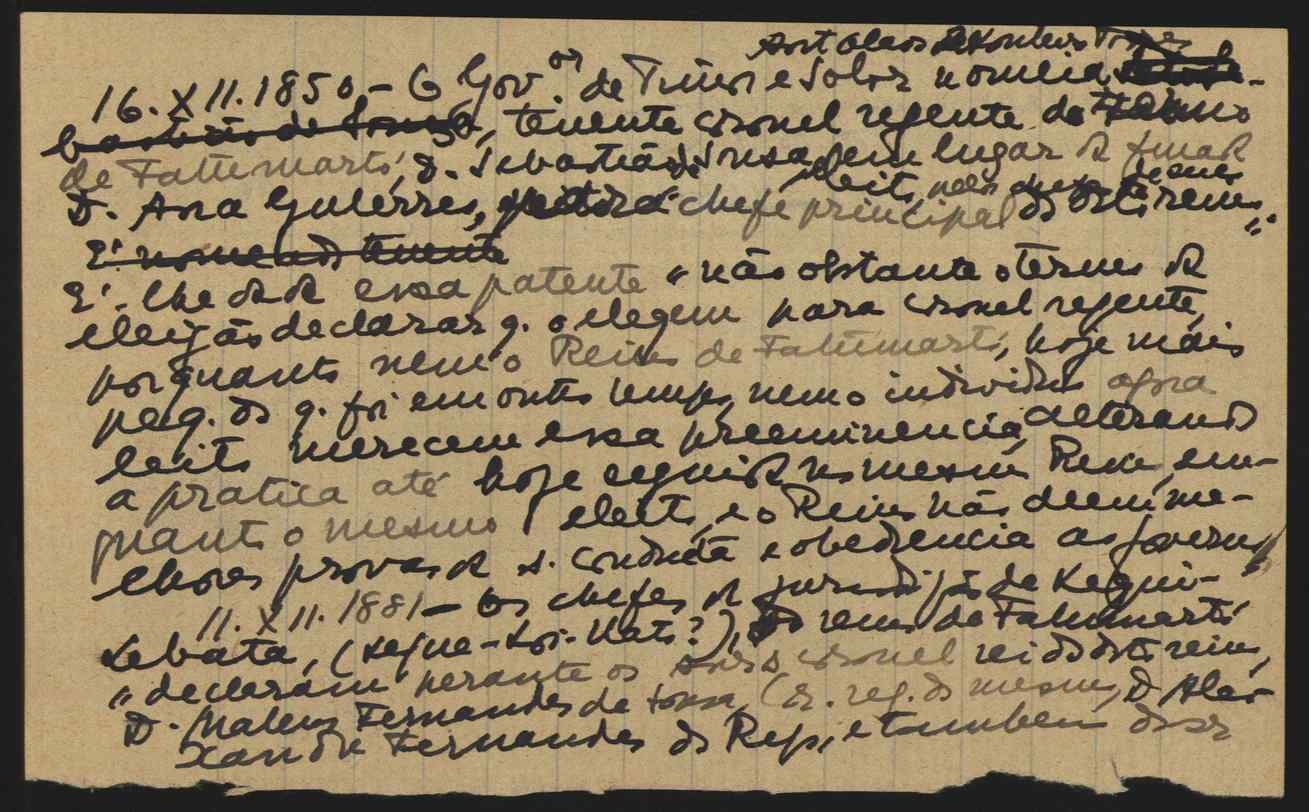 Ant Olavo Monteiro Torres
16.XII.1850 – O Gov.or de Timor e Solor nomeia
bastião de Sousa, tenente coronel regente do Reino
de Fatumarto, D. Sebastião de Sousa, em lugar de
D. Ana Gutérres, chefe principal do dito reino".
eleito pelos
E' nomeado tenente
E' lhe dada essa patente "não obstante o termo de
eleição declarar q. o elegem para coronel regente,
porquanto nem o Reino de Fatumarto, hoje mais
peq. do q. foi em outro tempo, nem o individuo agora
leito merecem essa preeminencia, alterando
a pratica até hoje seguida no mesmo Reino, em-
quanto o mesmo eleito, e o Reino não deem me-
lhores provas de s. conduta e obediencia ao governo
11.XII.1881 – Os chefes de jurisdição de Kequi-
Lebata, (Keque-Loi-Uato?), do reino de Fatumarto
"declaram perante os coronel rei do dito reino,
D. Mateus Fernandes de Sousa, (cor. reg. do mesmo, D. Ale-
xandre Fernandes do Rego, e tambem do sr